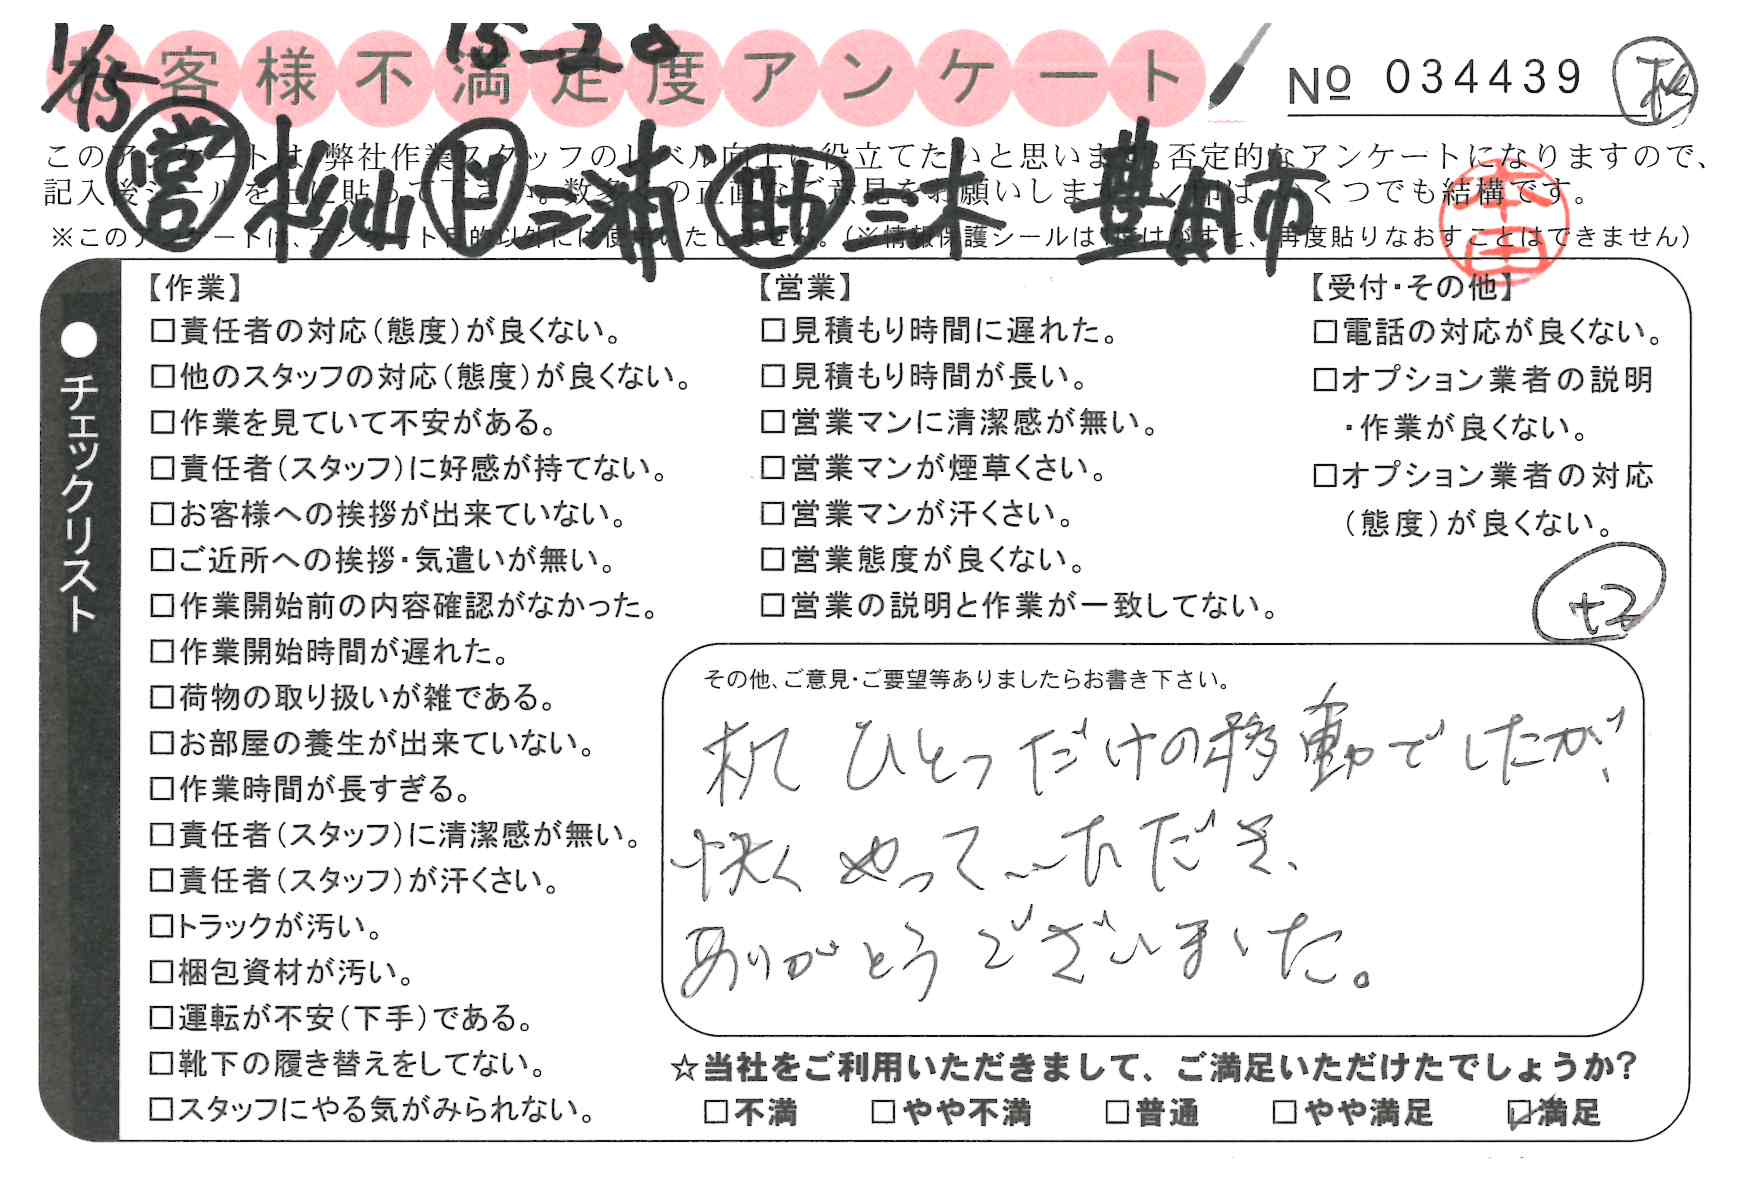 1/15 15-20
お客様不満足度アンケート
No 034439
営 杉山 ド 三浦 助 三木 豊田市
このアンケートは、弊社作業スタッフのレベル向上に役立てたいと思います。否定的なアンケートになりますので、
記入後シールを上に貼って下さい。数多くの正直なご意見をお願いします。い くつでも結構です。
※このアンケートは、アンケート目的以外には使用いたしません。(※情報保護シールは1度はがすと、再度貼りなおすことはできません)
本田
●チェックリスト
【作業】
□責任者の対応(態度)が良くない。
□他のスタッフの対応(態度)が良くない。
□作業を見ていて不安がある。
□責任者(スタッフ)に好感が持てない。
□お客様への挨拶が出来ていない。
□ご近所への挨拶・気遣いが無い。
□作業開始前の内容確認がなかった。
□作業開始時間が遅れた。
□荷物の取り扱いが雑である。
□お部屋の養生が出来ていない。
□作業時間が長すぎる。
□責任者(スタッフ)に清潔感が無い。
□責任者(スタッフ)が汗くさい。
□トラックが汚い。
□梱包資材が汚い。
□運転が不安(下手)である。
□靴下の履き替えをしてない。
□スタッフにやる気がみられない。
【営業】
□見積もり時間に遅れた。
□見積もり時間が長い。
□営業マンに清潔感が無い。
□営業マンが煙草くさい。
□営業マンが汗くさい。
□営業態度が良くない。
□営業の説明と作業が一致してない。
【受付・その他】
□電話の対応が良くない。
□オプション業者の説明
・作業が良くない。
□オプション業者の対応
(態度)が良くない。
+2
その他、ご意見・ご要望等ありましたらお書き下さい。
机 ひとつだけの移動でしたが、
快くやっていただき、
ありがとうございました。
☆当社をご利用いただきまして、ご満足いただけたでしょうか?
□不満 □やや不満 □普通 □やや満足 ☑満足